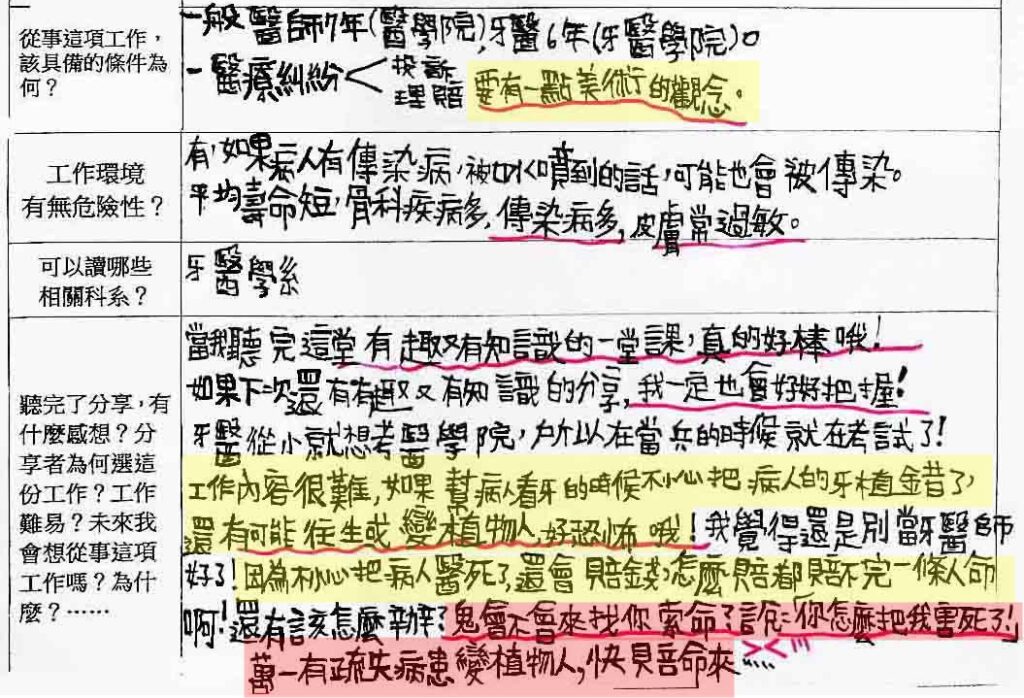 從事這項工作,
該具備的條件為
何?
一般醫師7年(醫學院),牙醫6年(牙醫學院)。
一醫療糾紛<投訴
理賠
要有一點美術的觀念。
工作環境
有無危險性?
有,如果病人有傳染病,被口水噴到的話,可能也會被傳染。
平均壽命短,骨科疾病多,傳染病多,皮膚常過敏。
可以讀哪些
相關科系?
牙醫學系
聽完了分享,有
什麼感想?分
享者為何選這
份工作?工作
難易?未來我
會想從事這項
工作嗎?為什
麼?……
當我聽完這堂有趣又有知識的一堂課,真的好棒哦!
如果下次還有有趣又有知識的分享,我一定也會好好把握!
牙醫從小就想考醫學院,所以在當兵的時候就在考試了!
工作內容很難,如果幫病人看牙的時候不小心把病人的牙植錯了,
還有可能往生或變植物人,好恐怖哦!我覺得還是別當牙醫師
好了!因為不小心把病人醫死了,還會賠錢,怎麼賠都賠不完一條人命
啊!還有該怎麼辦了鬼會不會來找你索命了說:「你怎麼把我害死了!」
萬一有疏失病患變植物人,快賠命來……
><